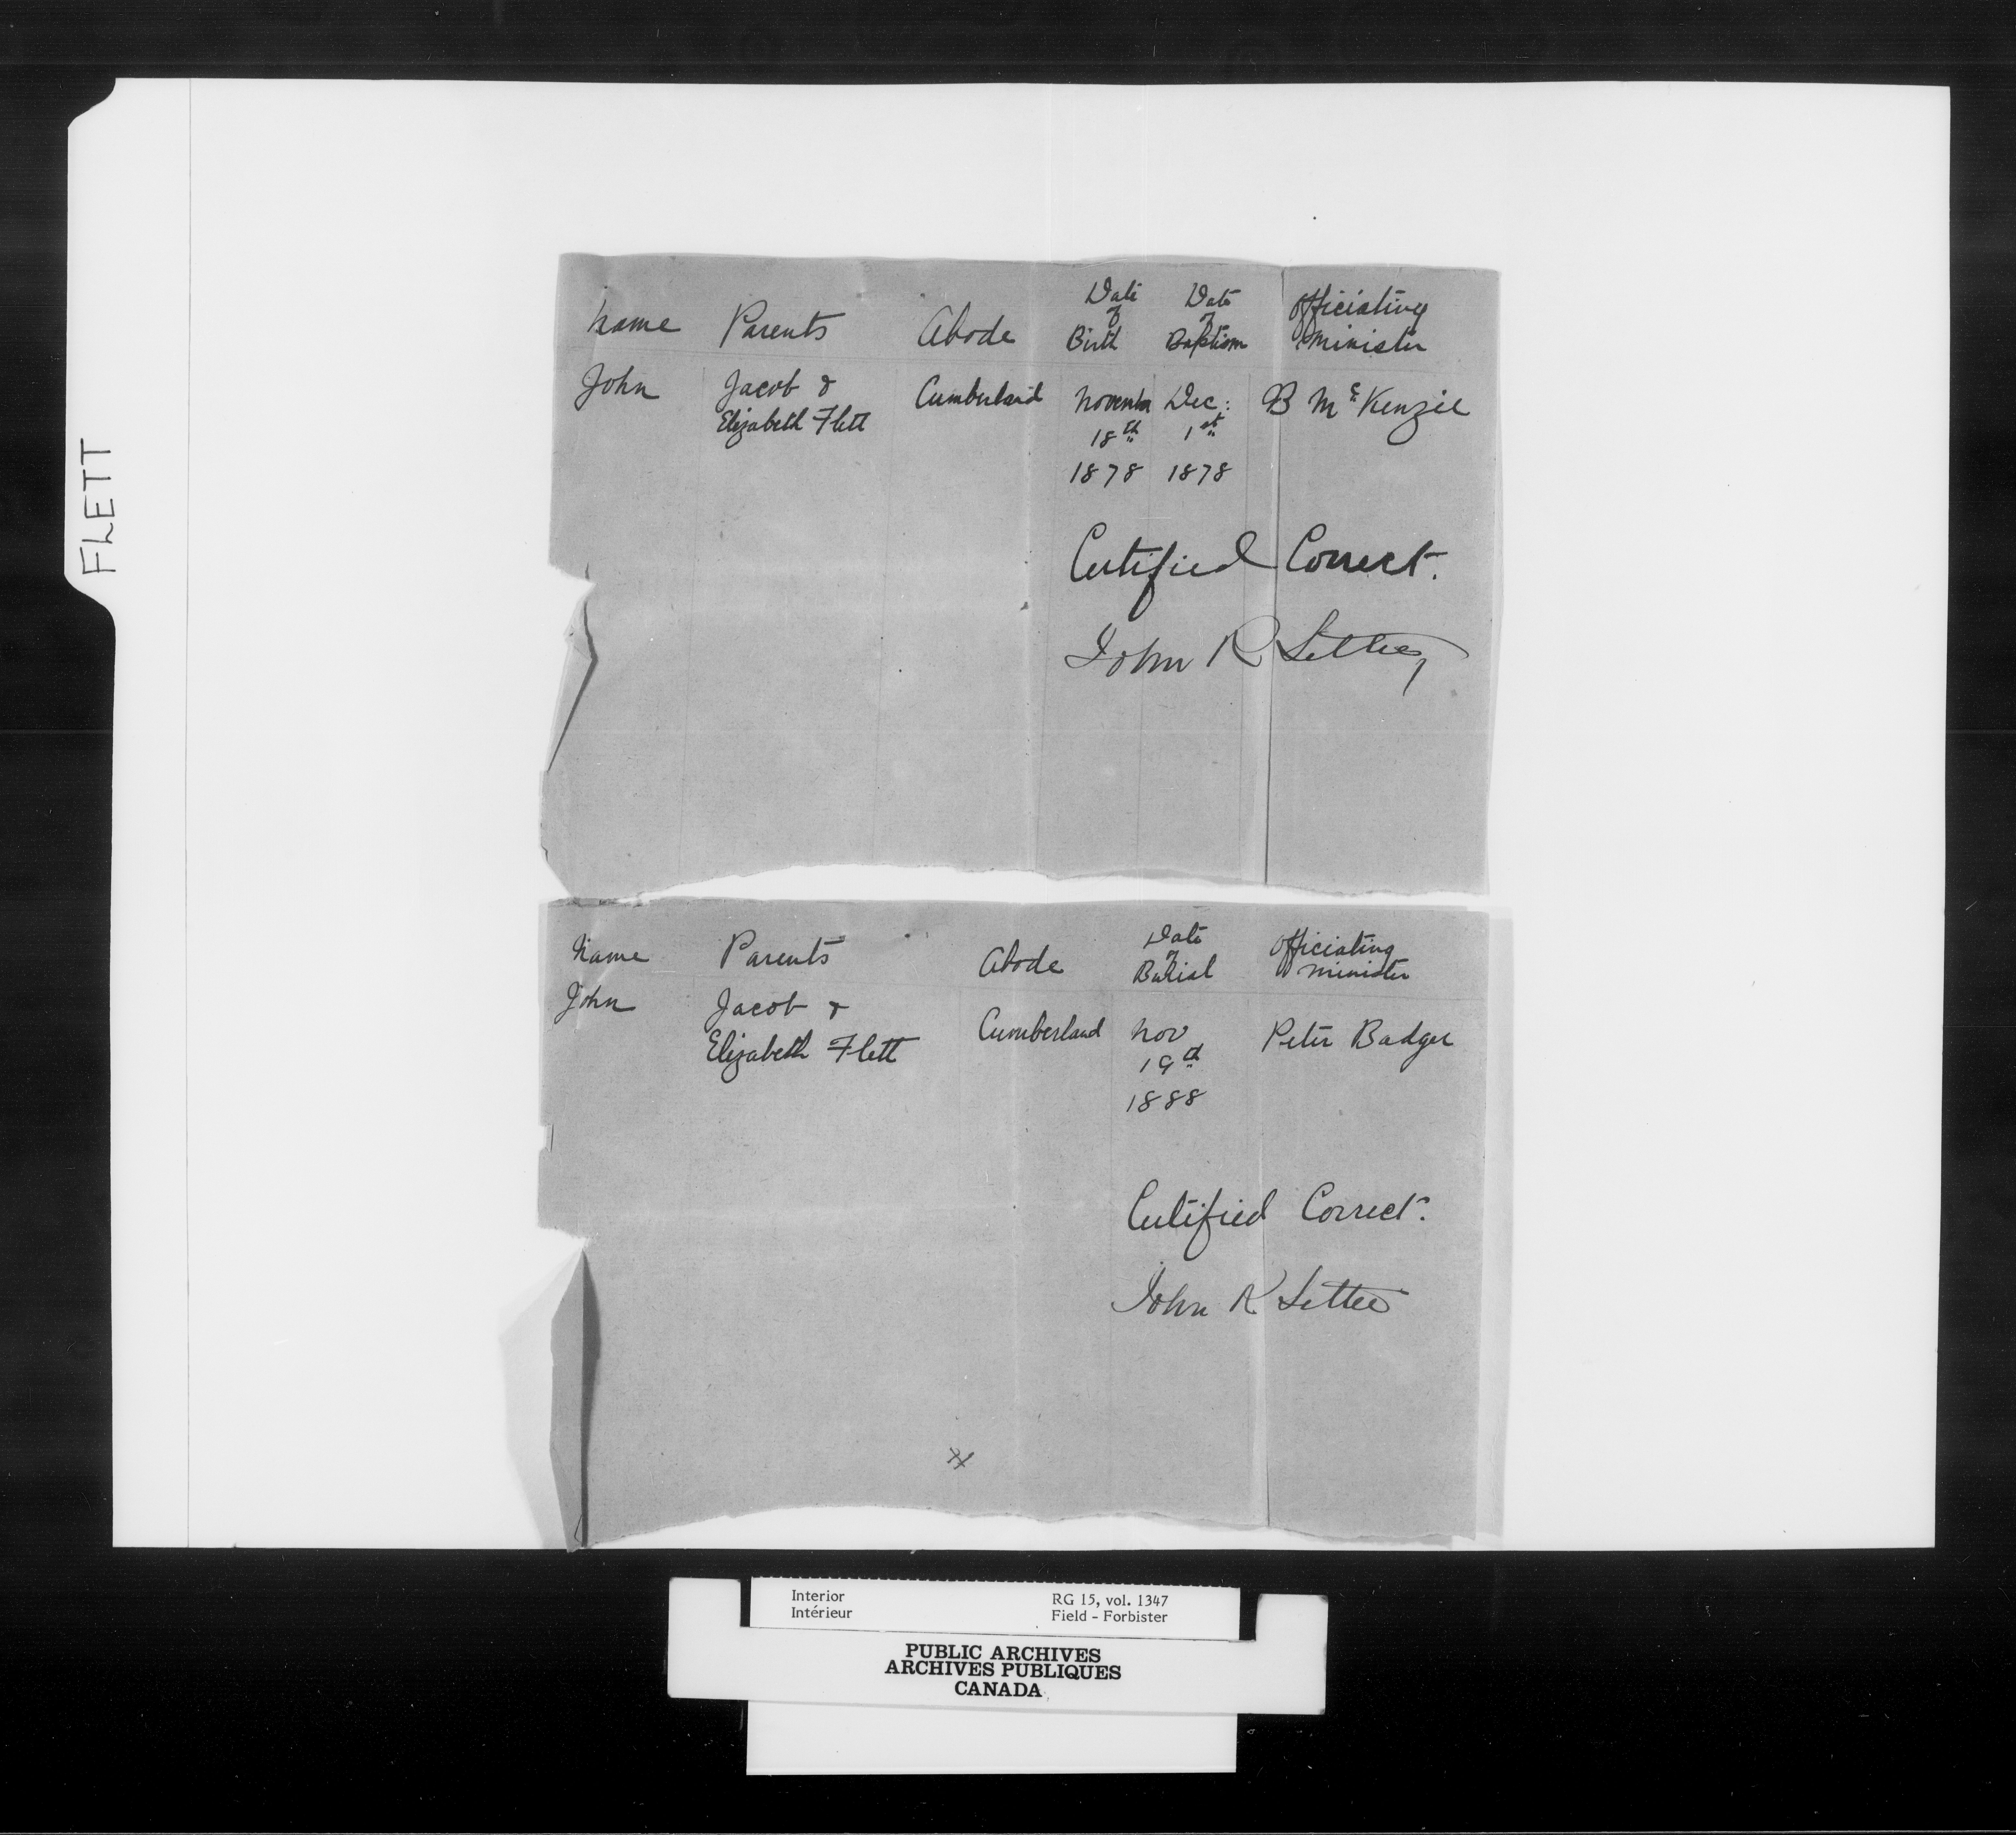 FLETT
Name Parents Abode Date of Birth Date of Baptism Officiating Minister
John Jacob & Elizabeth Flett Cumberland November 18th 1878 Dec: 1st 1878 B McKenzie
Certified Correct.
John R Settee
Name Parents Abode Date of Burial Officiating Minister
John Jacob & Elizabeth Flett Cumberland Nov 19th 1888 Peter Badger
Certified Correct.
John R Settee
Interior RG 15, vol. 1347
Intérieur Field - Forbister
PUBLIC ARCHIVES
ARCHIVES PUBLIQUES
CANADA